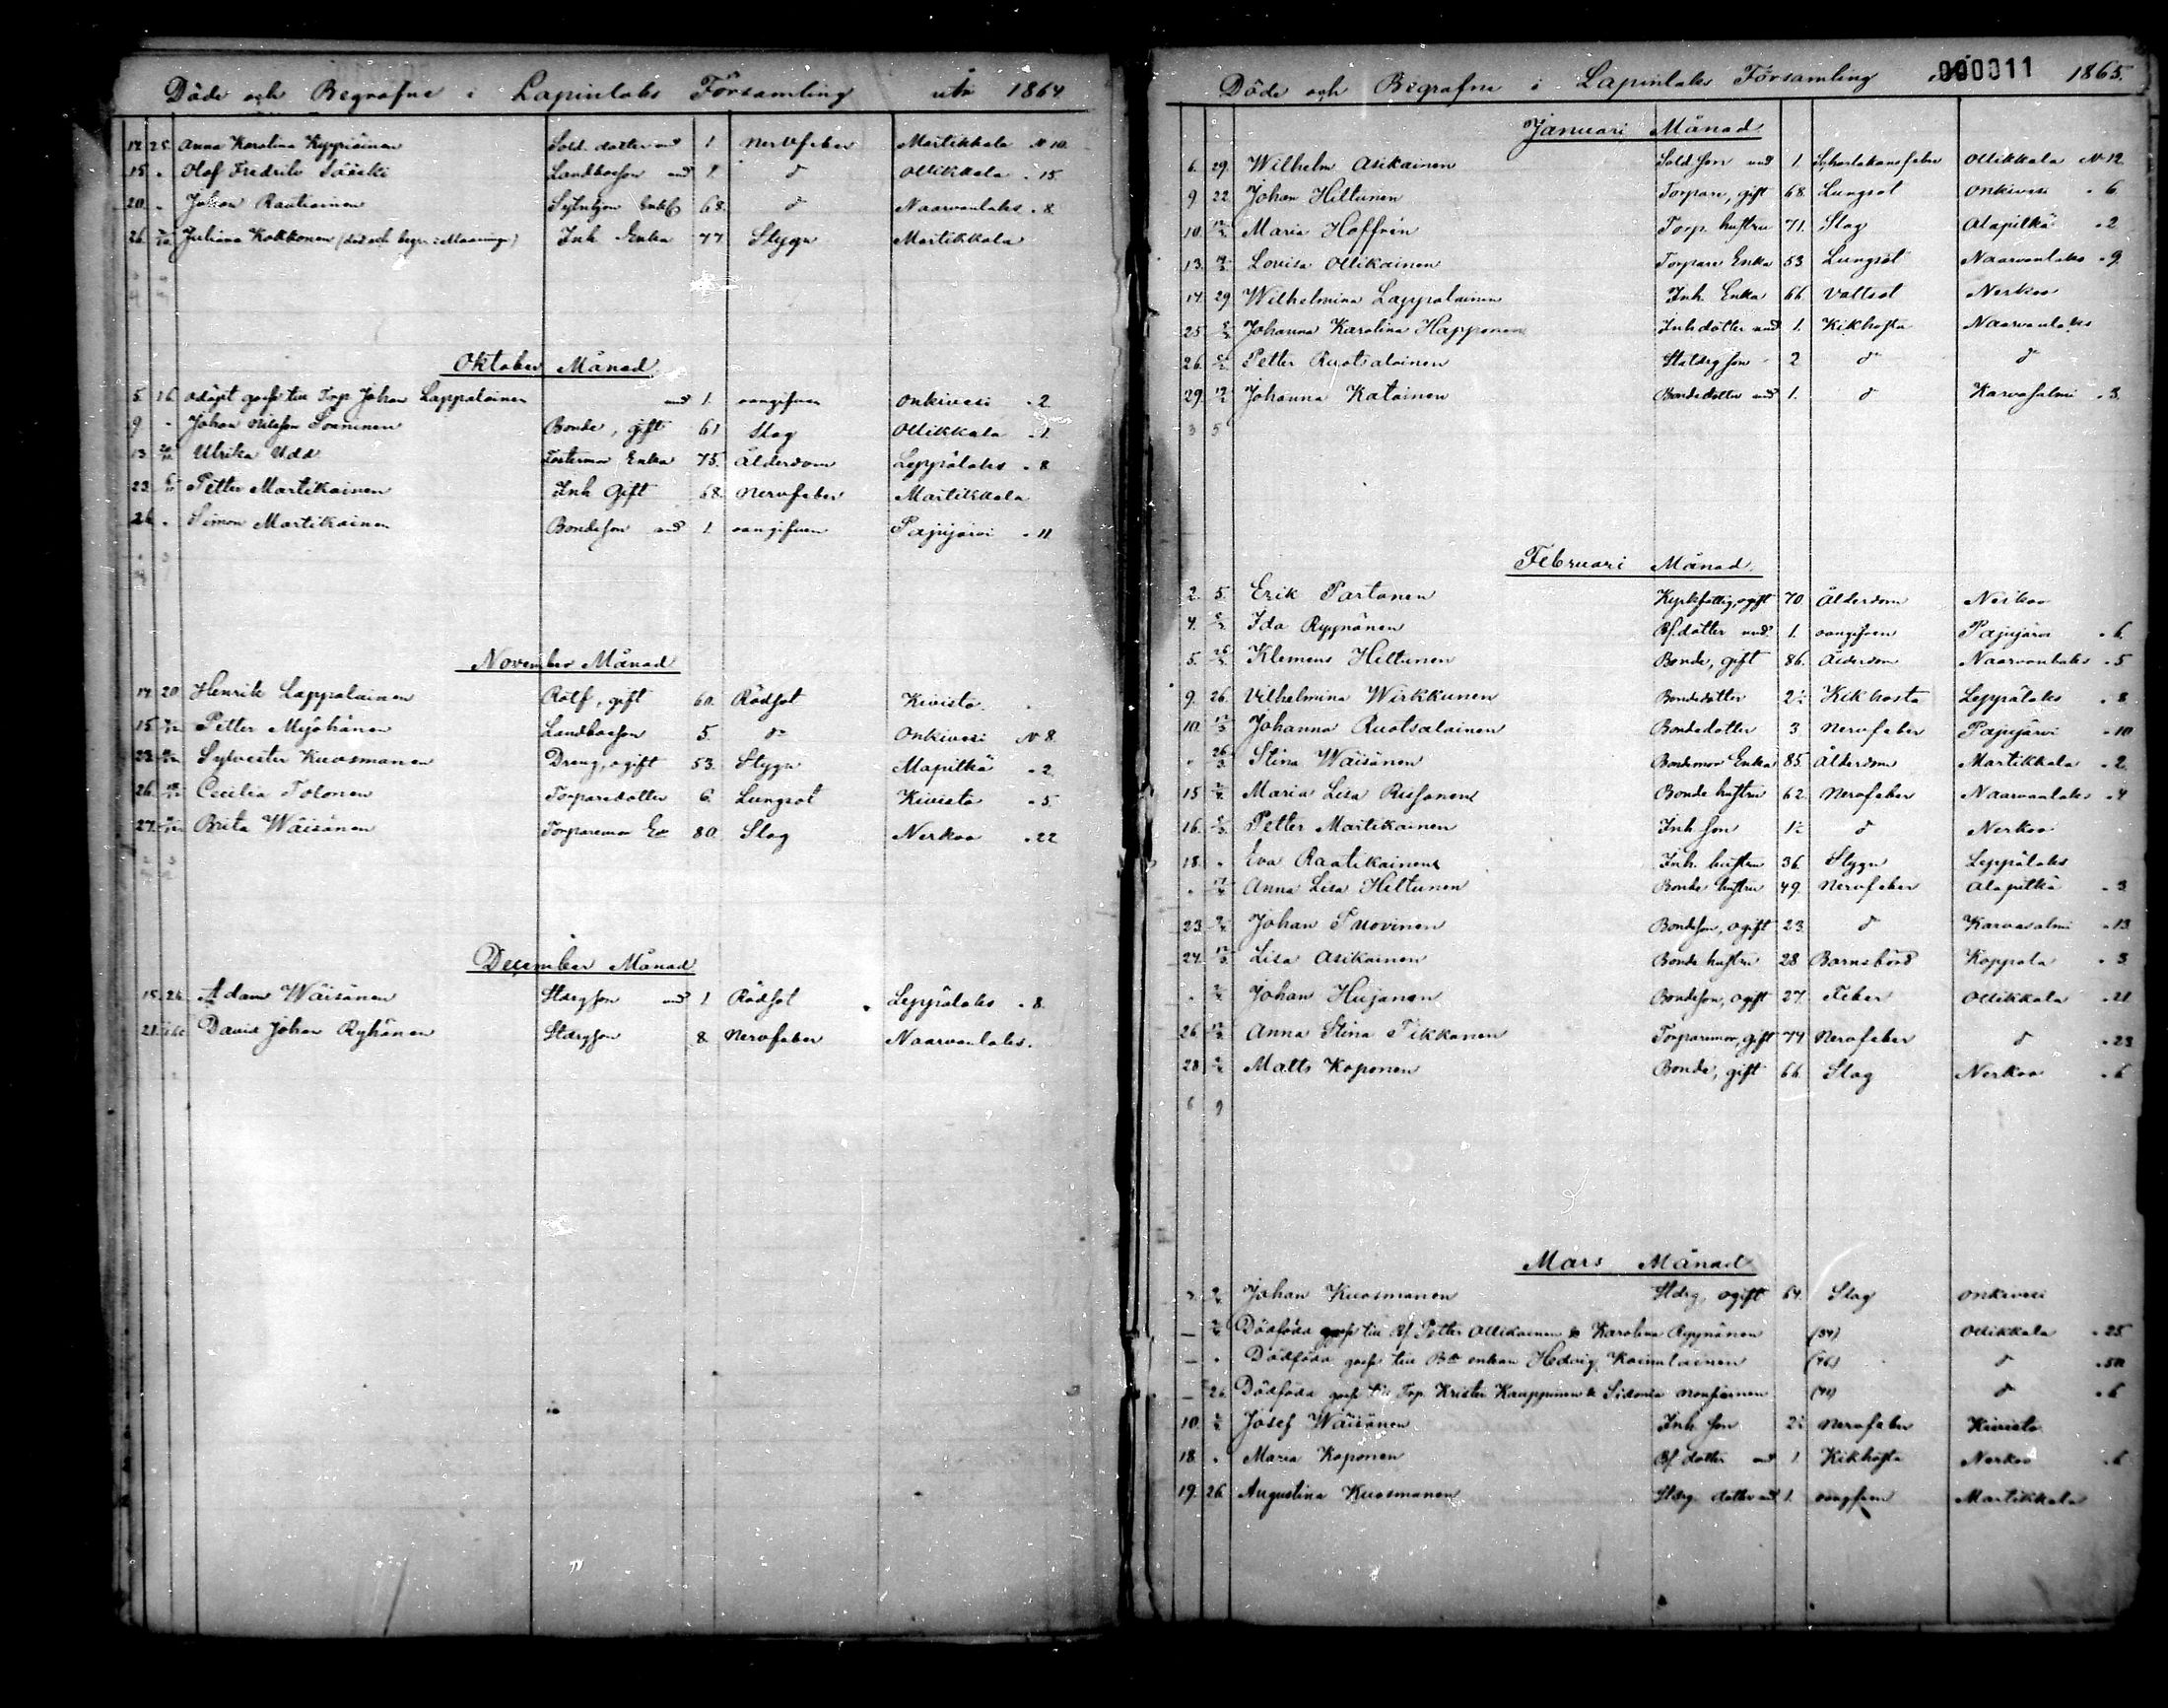 Döde och Begrafne i Lapinlaks Församling år 1864
14. 25. Anna Karolina Kyppiäinen Sold. dotter und 1. Nervfeber Martikkala N 10.
15 " Olof Fredrik Landboeson und 1. d Ollikkala " 15.
20. " Johan Rautiainen 68. d Naarvanlaks " 8.
26. Juliana Kokkonen (död och begr. i Maaninga) Inh. Enka 77. Stygn Martikkala
Oktober Månad
5. 16. odöpt till Torp. Johan Lappalainen und 1. oangifven Onkivesi " 2
9 " Johan Nilsson Soeninen Bonde, gift 61 Slag Ollikkala " 1.
13. Ulrika Udd Enka 75. Ålderdom Leppälaks " 8
23. Petter Martikainen Inh Gift 68. Nervfeber Martikkala
26. " Simon Martikainen Bondeson und 1. oangifven Pajujärvi " 11
November Månad
14. 20 Henrik Lappalainen Rotf, gift 60. Rödsot Kivistö
15. Petter Mejöhänen Landboeson 5. d:o Onkivesi N 8.
23. Sylvester Kuosmanen Dreng, ogift 53. Stygn Alapitkä " 2.
26. Cecilia Tolonen Torparedotter 6. Lungsot Kivistö " 5
27. Brita Wäisänen Torparemor 80. Slag Nerkoo " 22
December Månad
15. 26. Adam Wäisänen Stdrgson und 1. Rödsot Leppälaks " 8.
21. David Johan Ryhänen Stdrgson 8. Nervfeber Naarvanlaks.
Döde och Begrafne i Lapinlaks Församling 000011 1865.
Januari Månad
6. 29. Wilhelm Asikainen Sold. son und 1. Scharlakansfeber Ollikkala N 12
9. 22. Johan Hiltunen Torpare, gift 68. Lungsot Onkivesi " 6
10. Maria Hoffrén Torp. hustru 71. Slag Alapitkä " 2
13. Lovisa Ollikainen Torpare Enka 53 Lungsot Naarvanlaks " 9.
14. 29. Wilhelmina Lappalainen Inh. Enka 66. Vattsot Nerkoo
25. Johanna Karolina Happonen Inh dotter und 1. Kikhosta Naarvanlaks
26. Petter Ruotsalainen Statdrg son 2 d:o d:o
29. Johanna Katainen Bondedotter und 1. d Karvasalmi " 3.
3 5
Februari Månad
2. 5. Erik Partanen Kyrkfattig, ogift 70. Ålderdom Nerkoo
4. Ida Ryynänen Bf. dotter und 1. oangifven Pajujärvi " 6.
5. Klemens Hiltunen Bonde, gift 86. Ålderdom Naarvanlaks " 5
9. 26. Vilhelmina Wirkkunen Bondedotter 2½ Kikhosta Leppälaks " 8
10. Johanna Ruotsalainen Bondedotter 3 Nervfeber Pajujärvi " 10
" Stina Wäisänen Bondemor Enka 85. Ålderdom Martikkala " 2.
15 Maria Lisa Rissanen Bonde hustru 62 Nervfeber Naarvanlaks " 4
16. Petter Martikainen Inh. son 1½ d Nerkoo
18. " Eva Raatikainen Inh. hustru 36. Stygn Leppälaks
" Anna Lisa Hiltunen Bonde hustru 49. Nervfeber Alapitkä " 3
23. Johan Puovinen Bondeson, ogift 23. d Karvasalmi " 13
24. Lisa Asikainen Bonde hustru 28 Barnsbörd Koppola " 3
" Johan Hujanen Bondeson, ogift 27. Feber Ollikkala " 21
26 Anna Stina Tikkanen Torparemor, gift 74 Nervfeber d " 23
28 Matts Koponen Bonde, gift 66. Slag Nerkoo " 6
6 9
Mars Månad
3. Johan Kuosmanen Stdrg, ogift 64. Slag Onkivesi
— Dödföda till Bf. Petter Ollikainen & Karolina Ryynänen (34) Ollikkala " 25
— " Dödföda till enkan Hedvig Kainulainen (46) d
— 26. Dödföda till Torp. Krister Kauppinen & Sidonia (41) d " 6
10. Josef Wäisänen Inh. son 2½ Nervfeber Kivistö
18. " Maria Koponen Bf. dotter und 1 Kikhosta Nerkoo " 6
19. 26. Augustina Kuosmanen Stdrg. dotter und 1. oangifven Martikkala